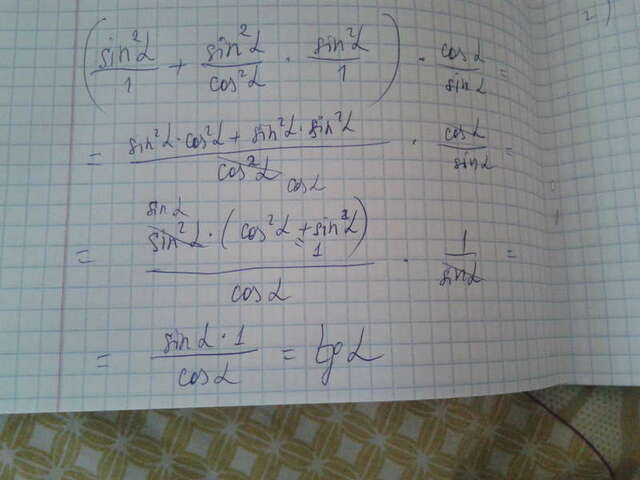 (sin²α/1 + sin²α/cos²α · sin²α/1) · cosα/sinα =
= sin²α·cos²α + sin²α·sin²α / cos²α cosα · cosα/sinα =
= sinα sin²α · (cos²α + sin²α) = 1 / cosα · 1/sinα =
= sinα · 1 / cosα = tgα